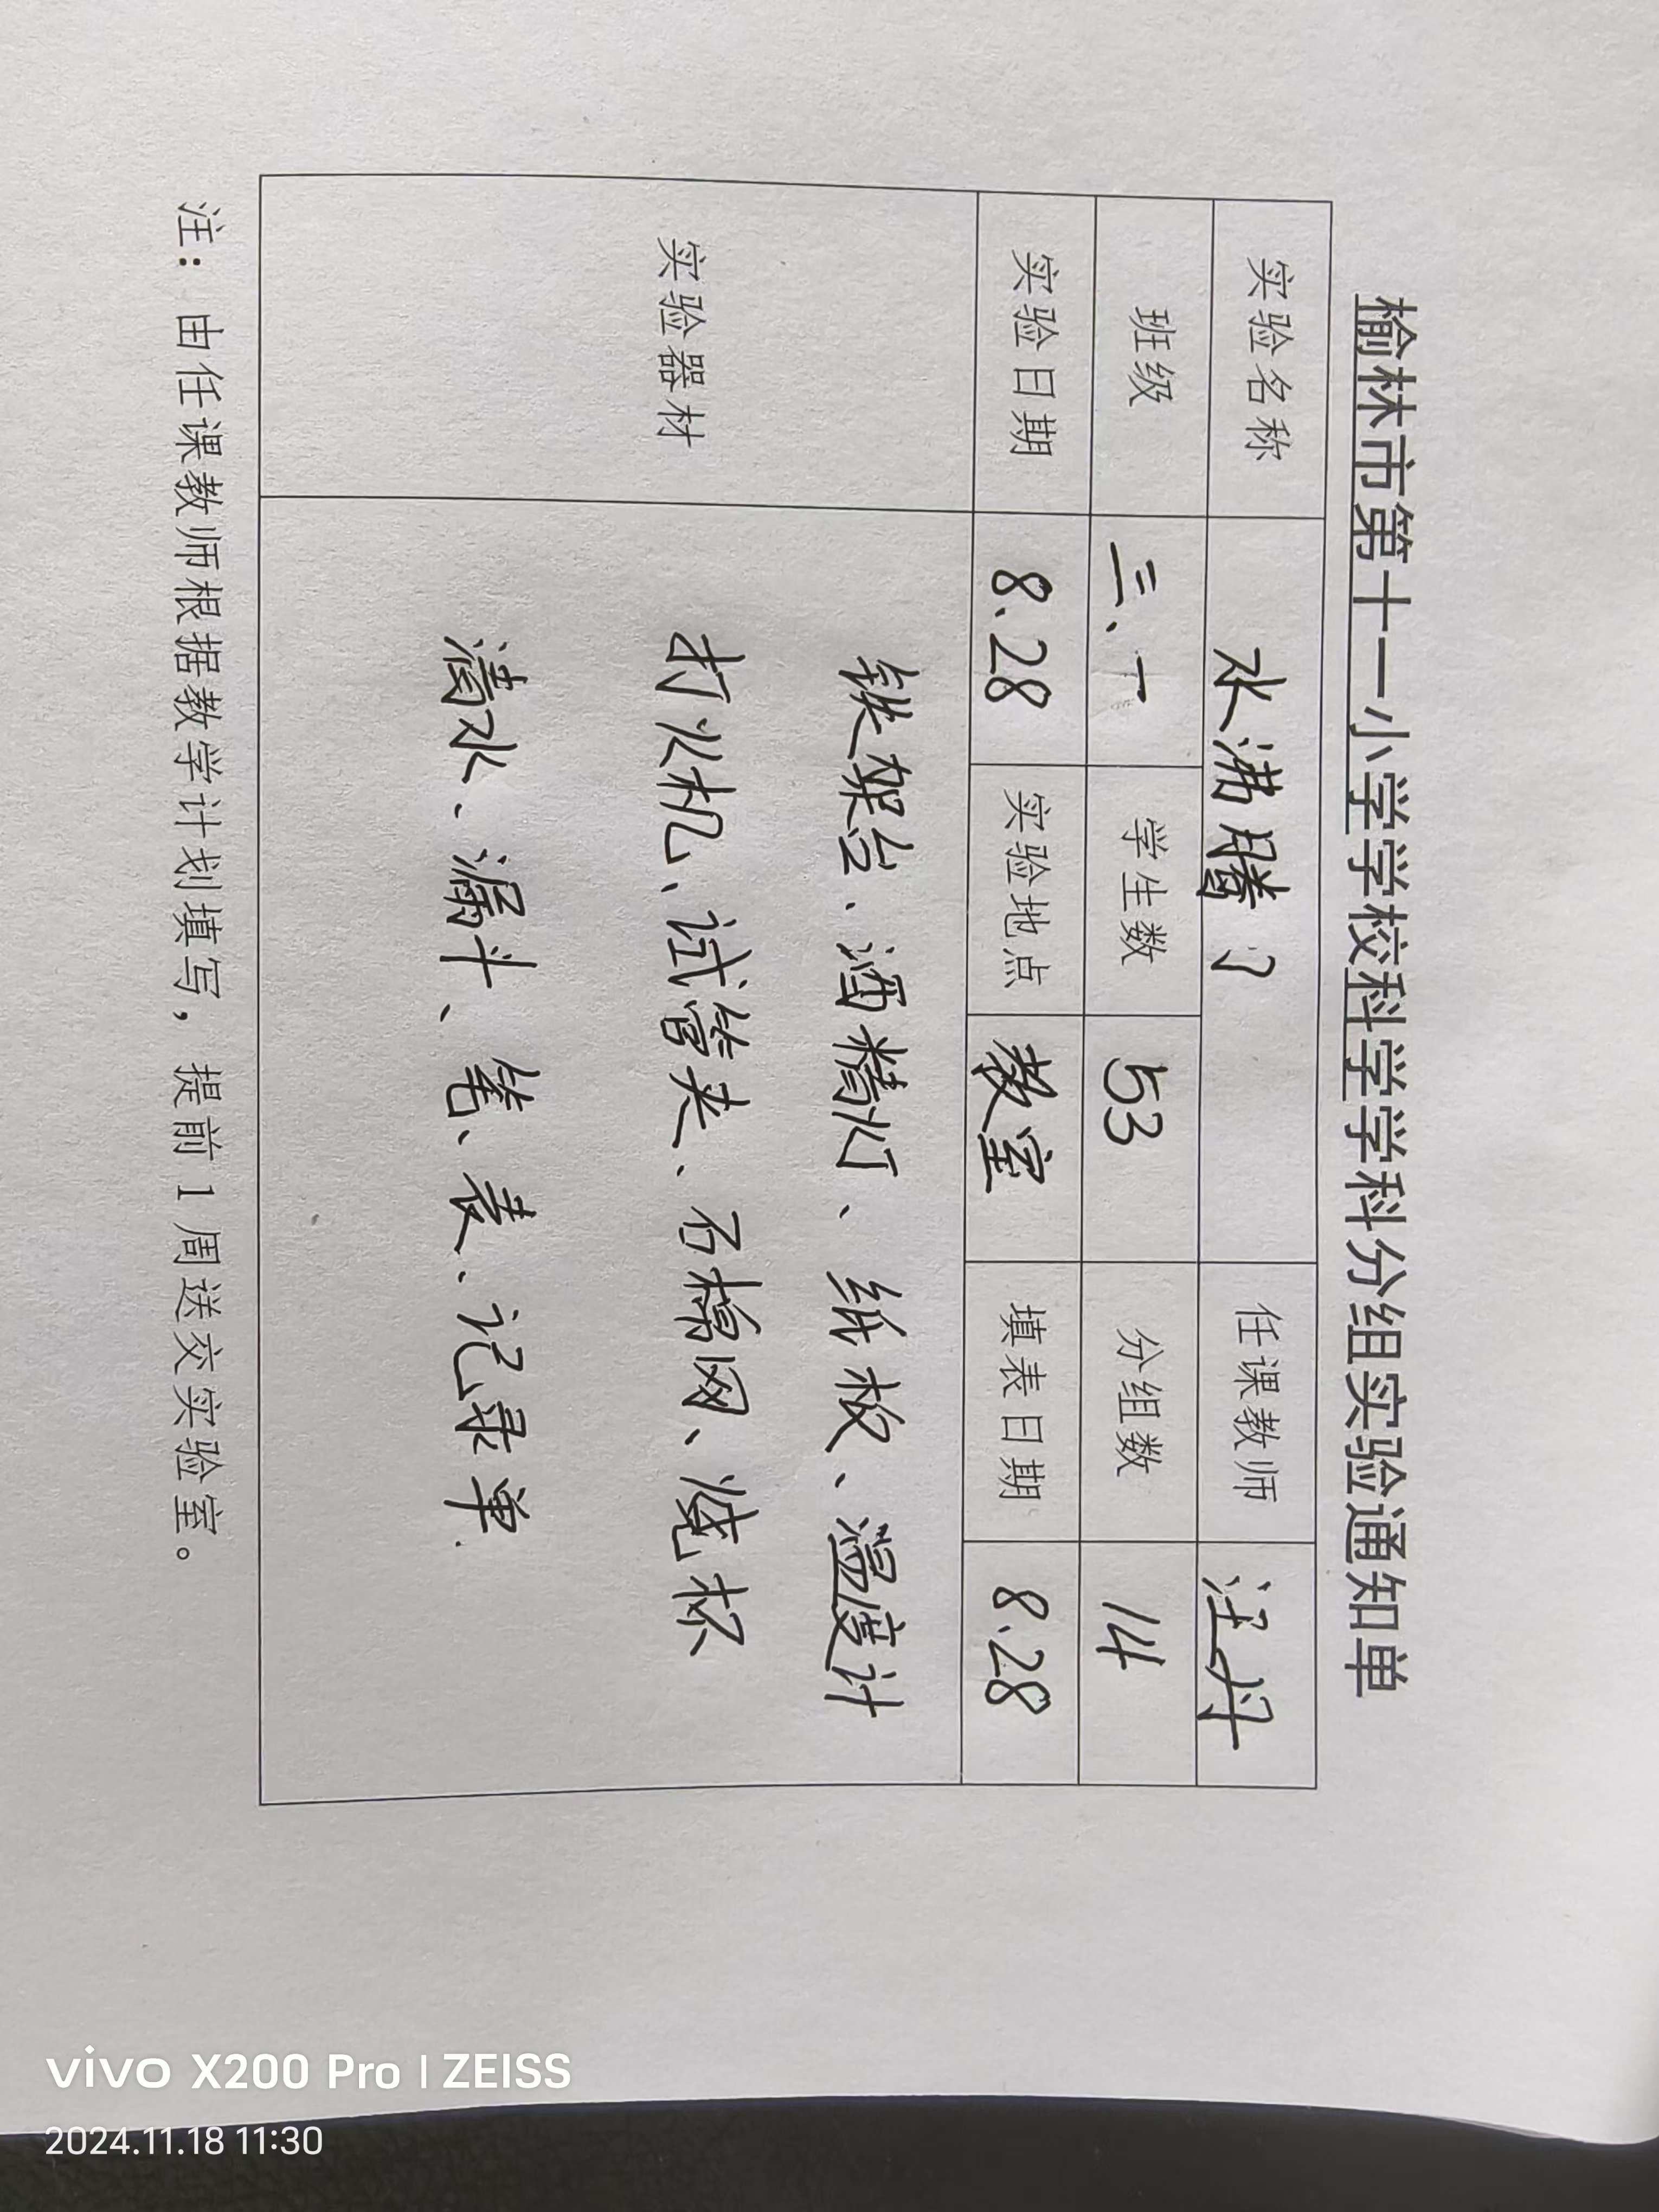 榆林市第十一小学学校科学学科分组实验通知单
实验名称 水沸腾了 任课教师 汪丹
班级 三、一 学生数 53 分组数 14
实验日期 8.28 实验地点 教室 填表日期 8.28
实验器材
铁架台、酒精灯、纸板、温度计
打火机、试管夹、石棉网、烧杯
清水、漏斗、笔、表、记录单.
注：由任课教师根据教学计划填写，提前1周送交实验室。
vivo X200 Pro | ZEISS
2024.11.18 11:30